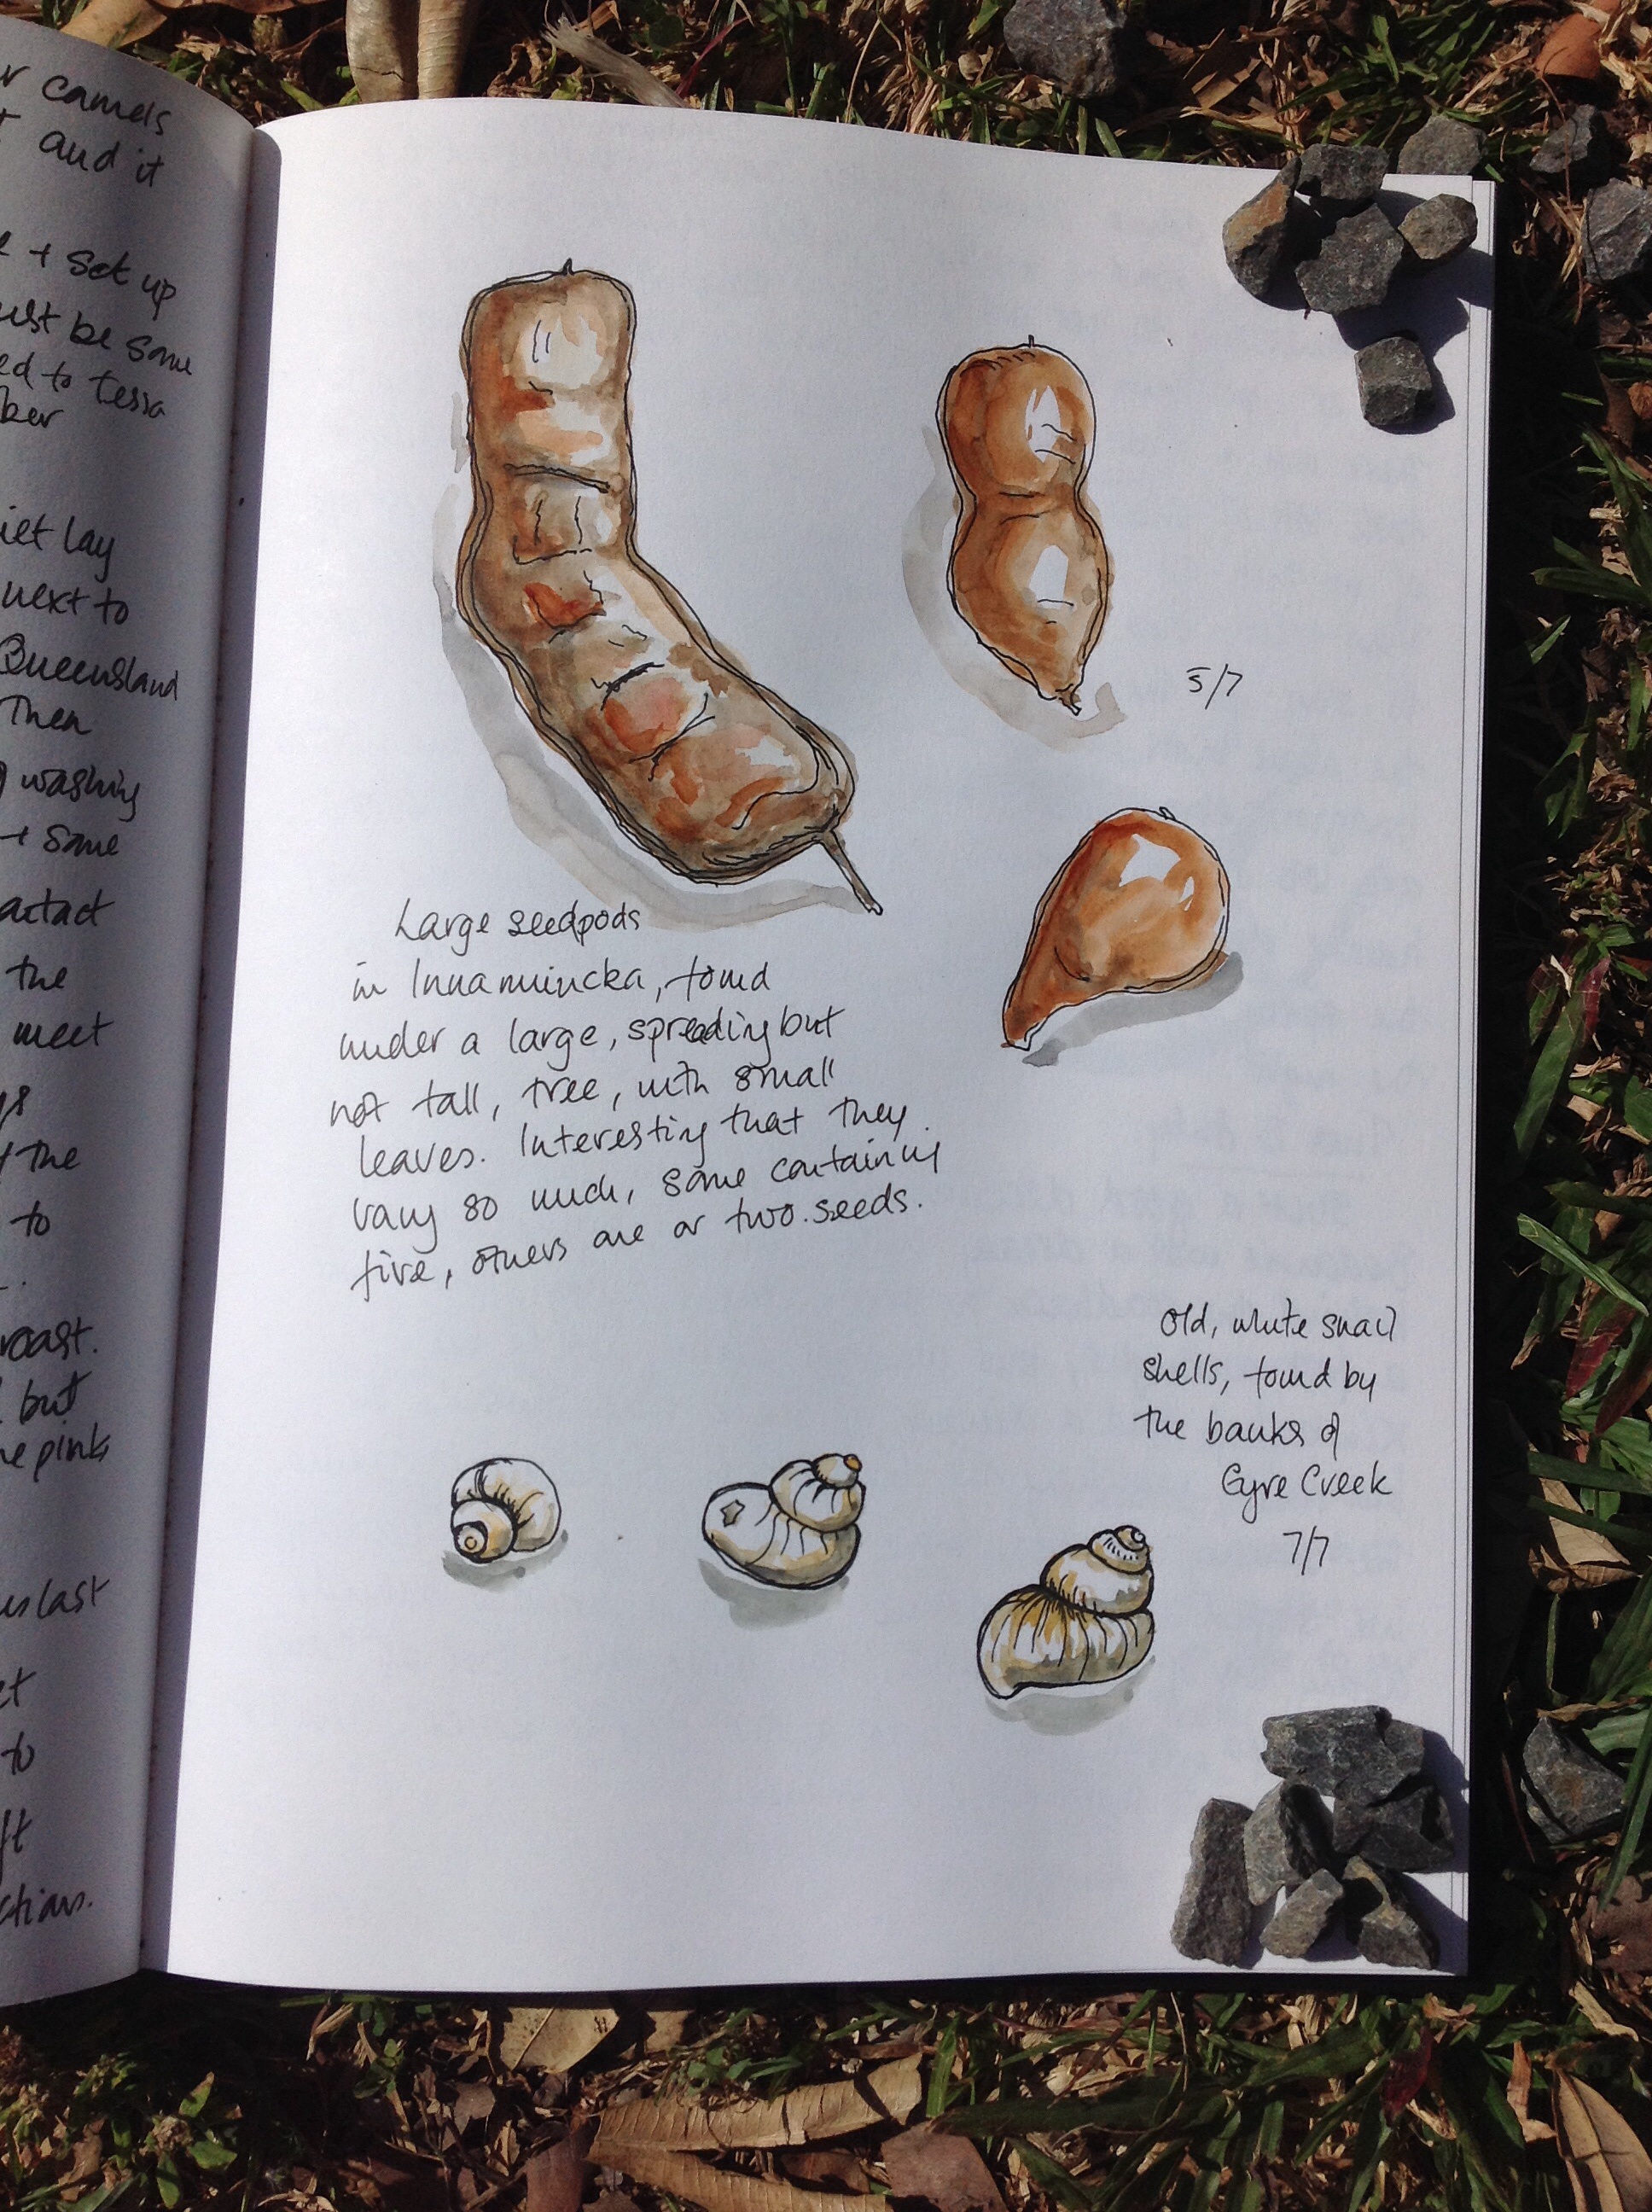 camels
and it
+ set up
be some
to tessa
lay
next to
Queensland
Then
washing
+ some
the
meet
the
to
roast.
but
pink
last
to
5/7
Large seedpods
in Innamincka, found
under a large, spreading but
not tall, tree, with small
leaves. Interesting that they
vary so much, some containing
five, others one or two seeds.
Old, white snail
shells, found by
the banks of
Eyre Creek
7/7